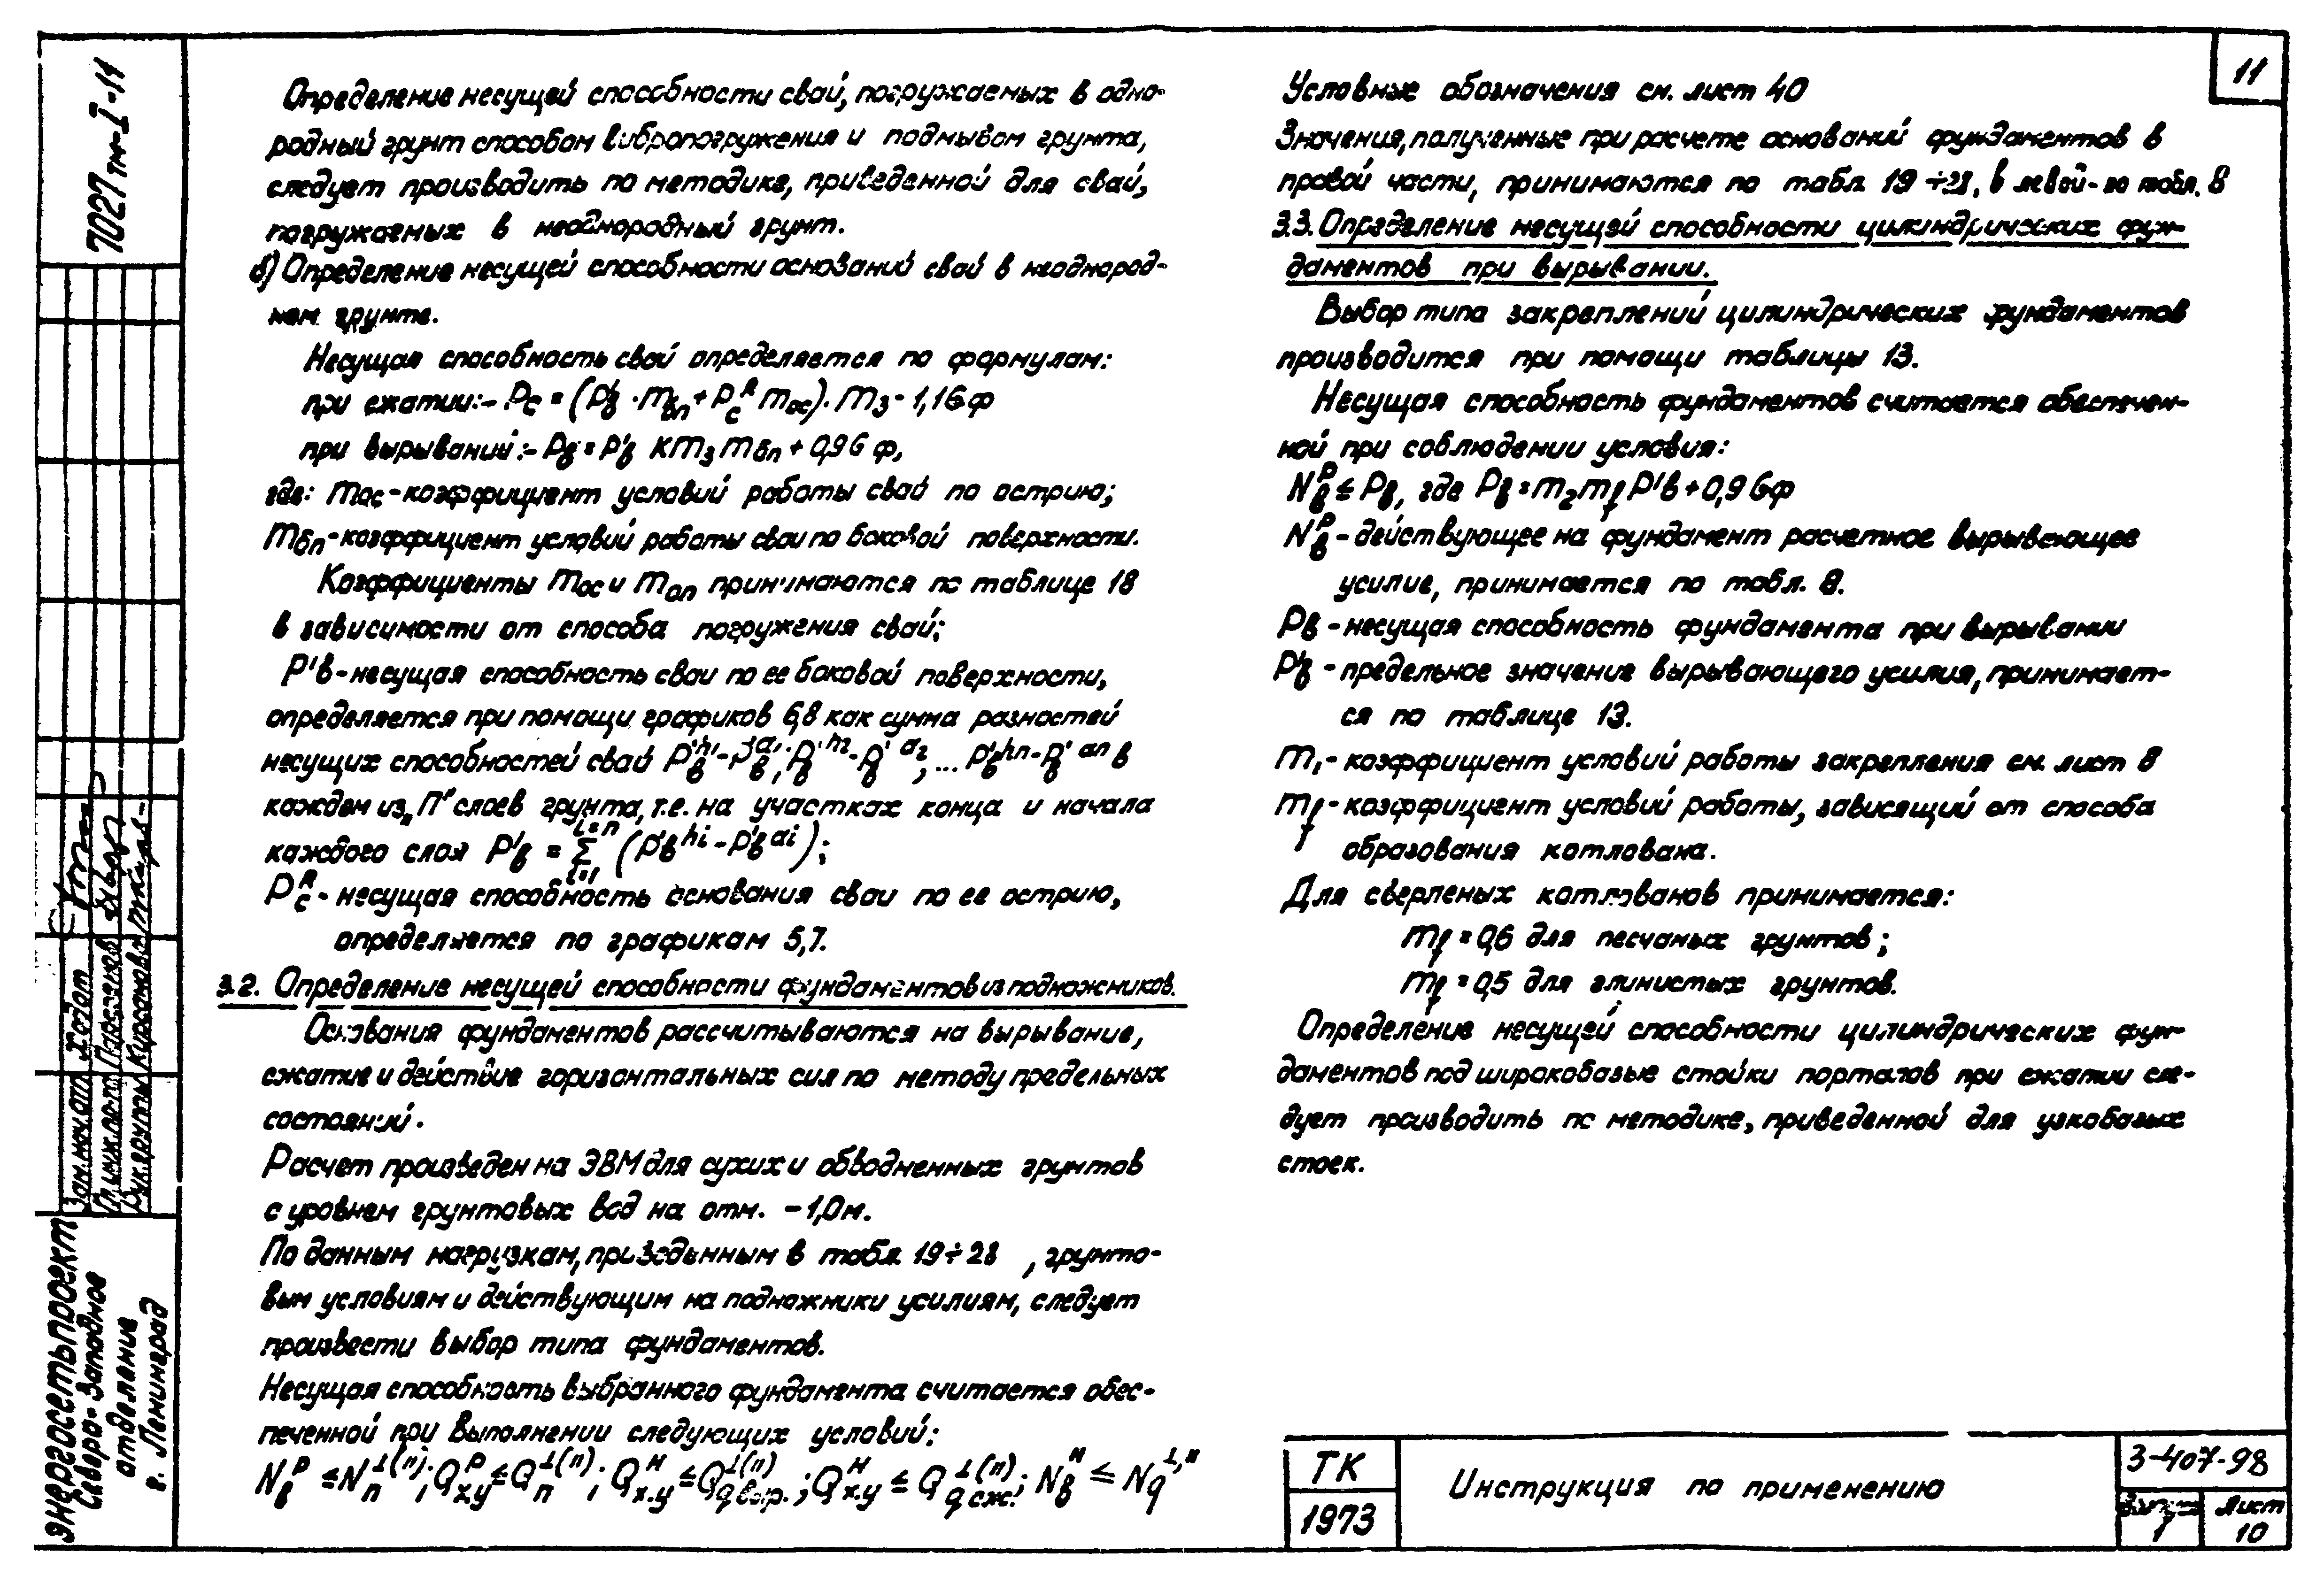 11
7027тм-I-11
Определение несущей способности свай, погружаемых в одно-
родный грунт способом вибропогружения и подмывом грунта,
следует производить по методике, приведенной для свай,
погружаемых в неоднородный грунт.
б) Определение несущей способности оснований свай в неоднород-
ном грунте.
Несущая способность свай определяется по формулам:
при сжатии:- Pc = (P'в · mбп + Pc^R mос) · m3 - 1,1Gф
при вырываний:- Pв = P'в K m3 mбп + 0,9G ф,
где: mос - коэффициент условий работы свай по острию;
mбп - коэффициент условий работы сваи по боковой поверхности.
Коэффициенты mос и mоп принимаются по таблице 18
в зависимости от способа погружения свай;
P'в - несущая способность сваи по ее боковой поверхности,
определяется при помощи графиков 6,8 как сумма разностей
несущих способностей свай P'в^h1 - P'в^a1; P'в^h2 - P'в^a2, ... P'в^hn - P'в^an в
каждом из „П" слоев грунта, т.е. на участках конца и начала
каждого слоя P'в = Σ i=1 i=n (P'в^hi - P'в^ai);
Pc^R - несущая способность основания сваи по ее острию,
определяется по графикам 5,7.
3.2. Определение несущей способности фундаментов из подножников.
Основания фундаментов рассчитываются на вырывание,
сжатие и действие горизонтальных сил по методу предельных
состояний.
Расчет произведен на ЭВМ для сухих и обводненных грунтов
с уровнем грунтовых вод на отм. -1,0м.
По данным нагрузкам, приведенным в табл. 19÷28 , грунто-
вым условиям и действующим на подножники усилиям, следует
произвести выбор типа фундаментов.
Несущая способность выбранного фундамента считается обес-
печенной при выполнении следующих условий:
Nв^P ≤ Nп^⊥(п); Qx.y^P ≤ Qп^⊥(п); Qx.y^H ≤ Qq выр.^⊥(п); Qx.y^H ≤ Qq сж.^⊥(п); Nв^H ≤ Nq^⊥,п
Условные обозначения см. лист 40
Значения, полученные при расчете оснований фундаментов в
правой части, принимаются по табл. 19÷28, в левой - по табл. 8
3.3. Определение несущей способности цилиндрических фун-
даментов при вырывании.
Выбор типа закреплений цилиндрических фундаментов
производится при помощи таблицы 13.
Несущая способность фундаментов считается обеспечен-
ной при соблюдении условия:
Nв^P ≤ Pв, где Pв = m2 mf P'в + 0,9 Gф
Nв^P - действующее на фундамент расчетное вырывающее
усилие, принимается по табл. 8.
Pв - несущая способность фундамента при вырывании
P'в - предельное значение вырывающего усилия, принимает-
ся по таблице 13.
m1 - коэффициент условий работы закрепления см. лист 8
mf - коэффициент условий работы, зависящий от способа
образования котлована.
Для сверленых котлованов принимается:
mf = 0,6 для песчаных грунтов;
mf = 0,5 для глинистых грунтов.
Определение несущей способности цилиндрических фун-
даментов под широкобазые стойки порталов при сжатии сле-
дует производить по методике, приведенной для узкобазых
стоек.
Зам.нач.отп Ходот
Гл.инж.пр-та Парсенков
Рук.группы Кирсанова
Энергосетьпроект
Северо-Западное
отделение
г. Ленинград
ТК
1973
Инструкция по применению
3-407-98
Выпуск
1
Лист
10